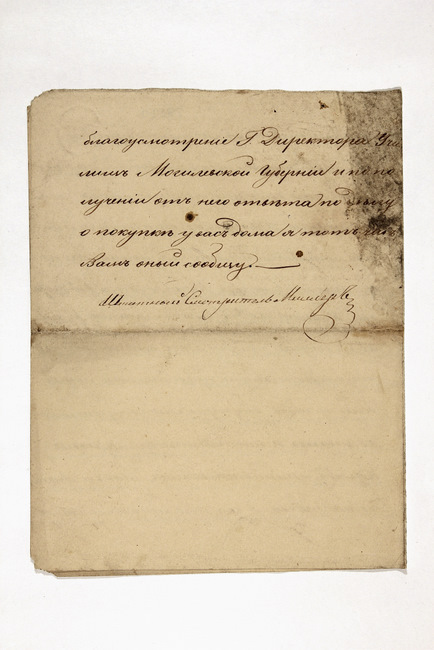 благоусмотреніе Г. Директора Учи
лищъ Могилевской Губерніи и по по
лученіи отъ него отвѣта по
о покупкѣ у васъ дома я тотъ часъ
Вамъ оный сообщу. —
Штатный Смотритель